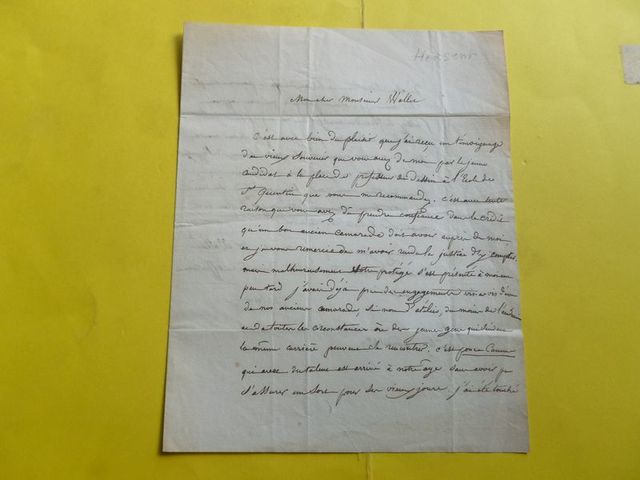 Hersent
Mon cher Monsieur
C'est avec bien du plaisir que j'ai reçu un témoignage
du vieux souvenir que vous avez de moi par le jeune
candidat à la place de professeur de dessin à l'Ecole de
St Quentin que vous me recommandez. c'est avec toute
raison que vous avez dû prendre confiance dans le crédit
qu'un bon ancien camarade doit avoir auprès de moi,
et je vous remercie de m'avoir rendu la justice d'y compter,
mais malheureusement votre protégé s'est présenté à moi un
peu tard j'avais déjà pris des engagements vis à vis d'un
de nos anciens camarades, si non d'atelier, du moins de
et de toutes les circonstances où des jeunes gens qui
la même carrière peuvent se rencontrer. c'est
qui avec du talent est arrivé à notre âge sans avoir pu
s'assurer un sort pour ses vieux jours. j'ai été touché